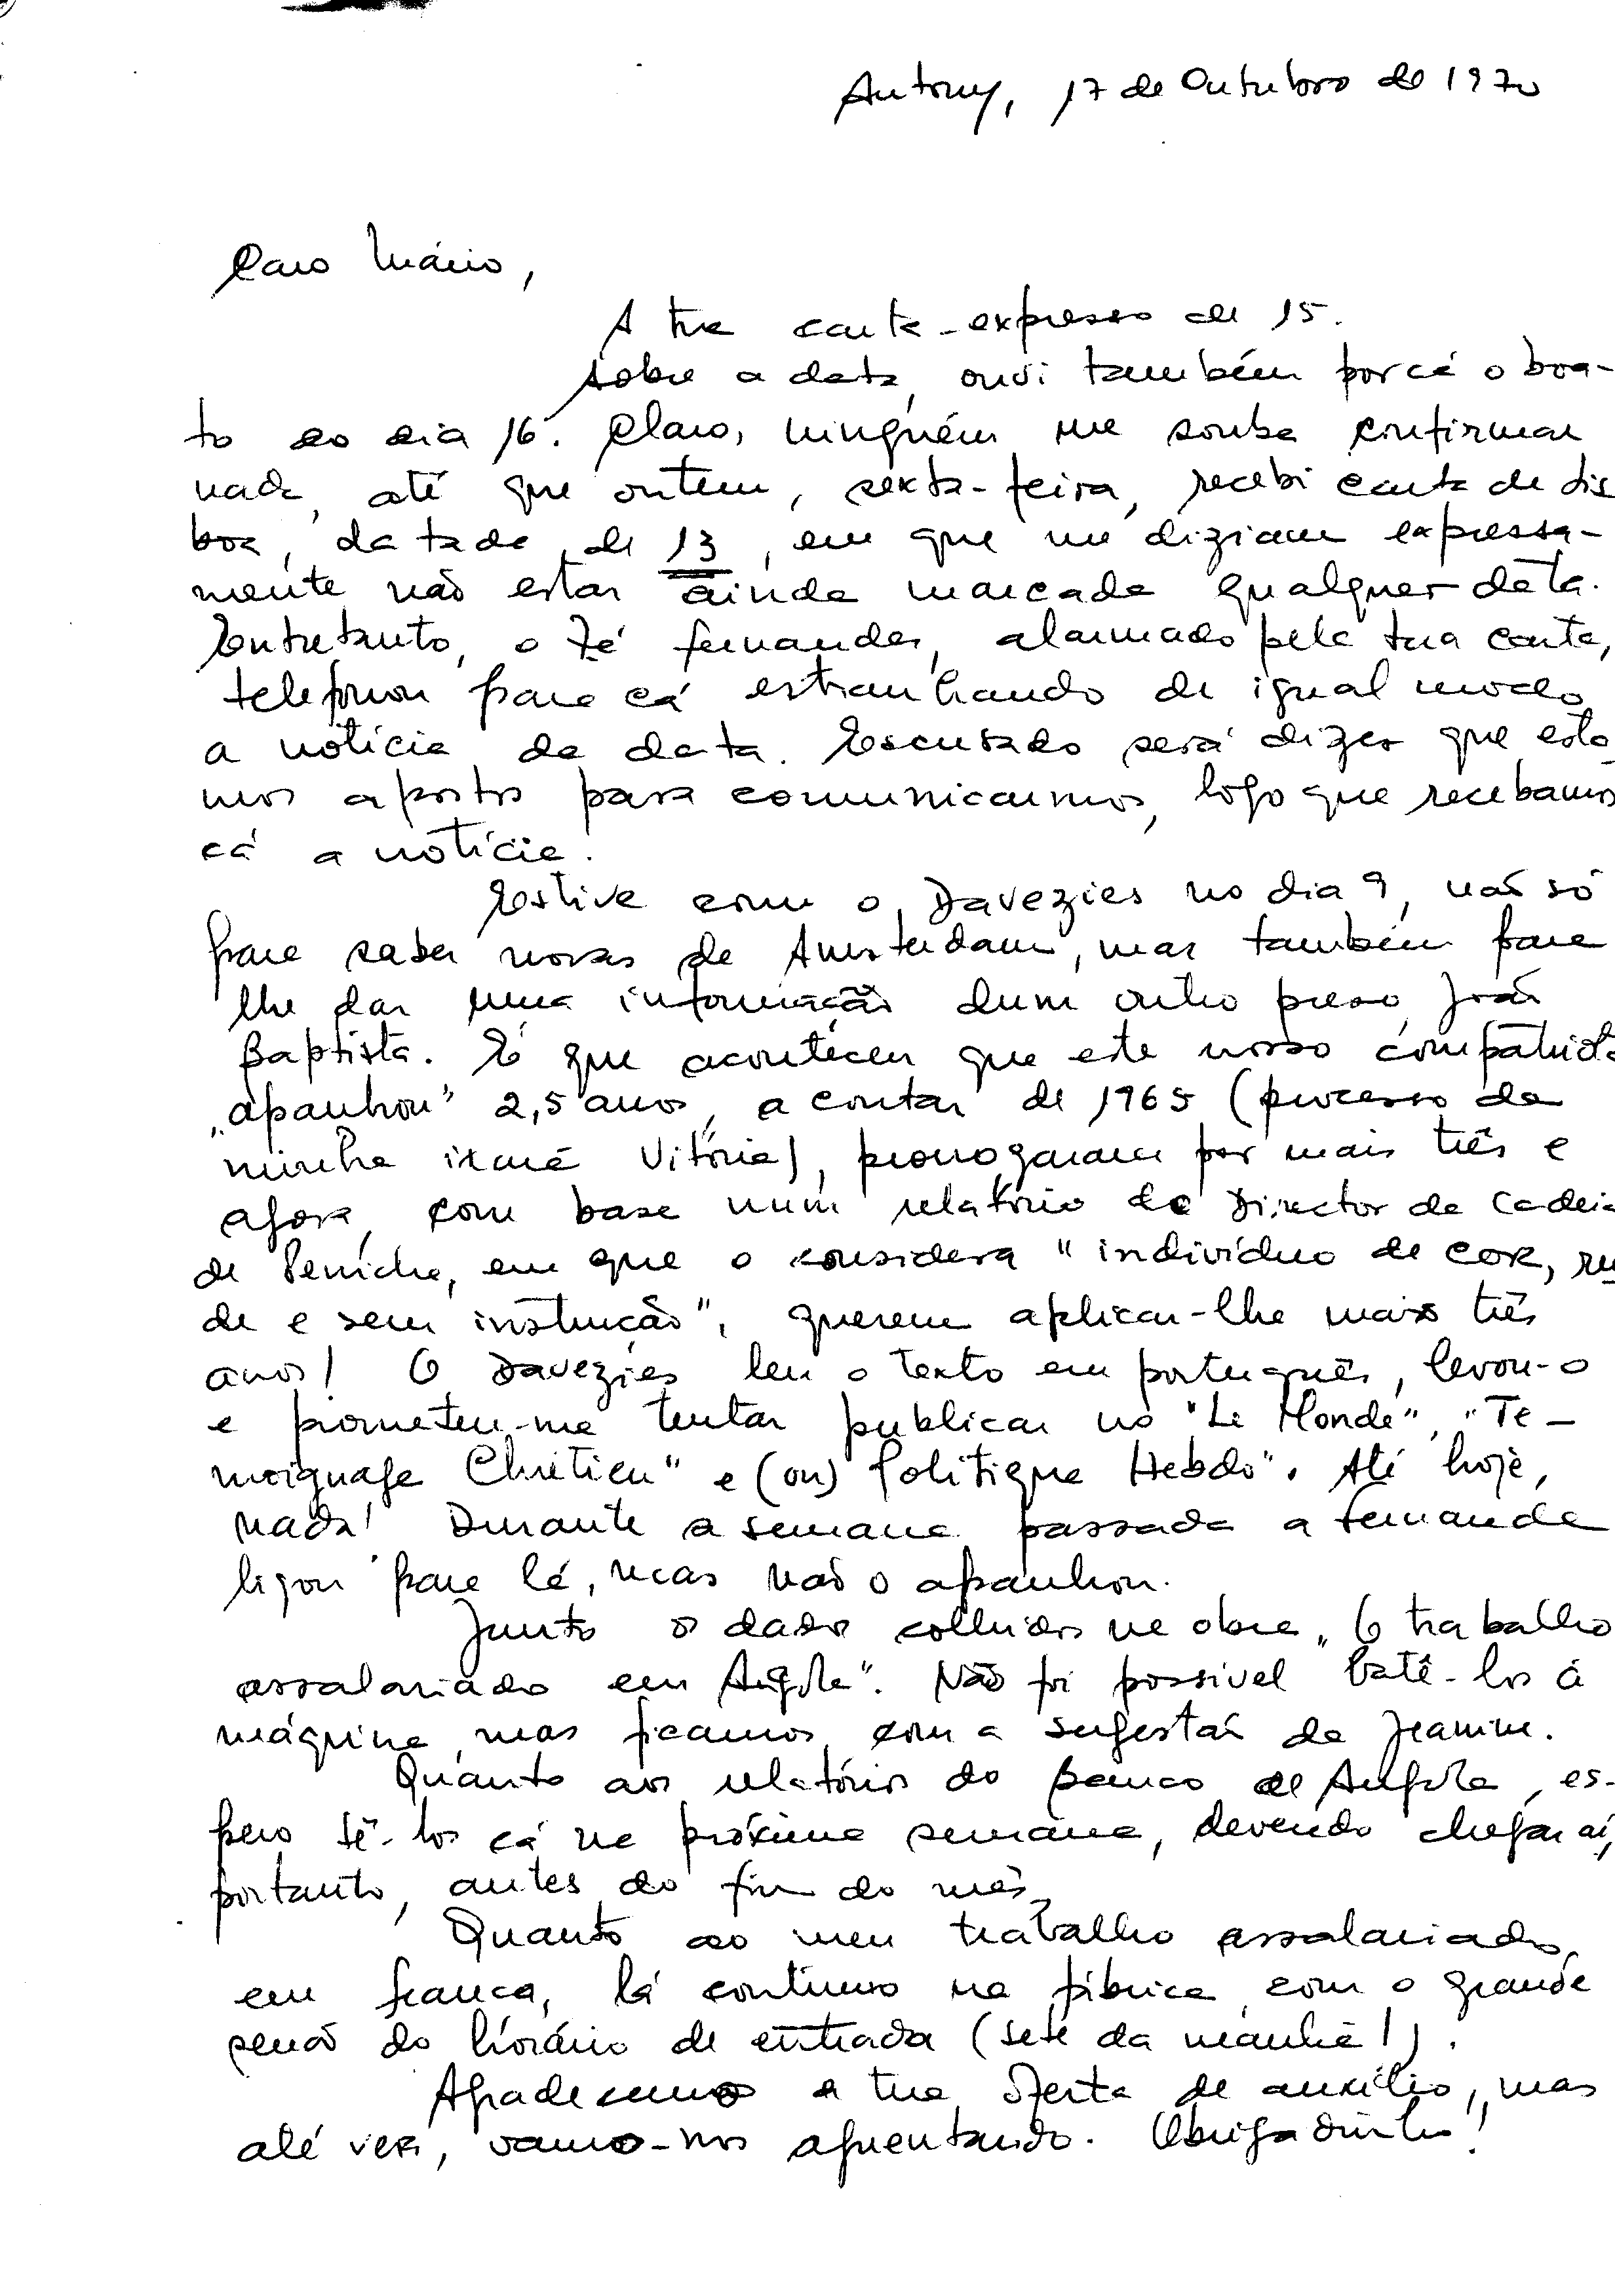 Antony, 17 de Outubro de 1970
Caro Mário,
A tua carta-expresso de 15.
Sobre a data, ouvi também por cá o boa-
to do dia 16. Claro, ninguém me soube confirmar
nada, até que ontem, sexta-feira, recebi carta de Lis
boa, datada de 13, em que me diziam expressa-
mente não estar ainda marcada qualquer data.
Entretanto, o Zé Fernandes, alarmado pela tua carta,
telefonou para cá estranhando de igual modo
a notícia da data. Escusado será dizer que esta
mos apostos para comunicarmos, logo que recebamos
cá a notícia.
Estive com o Davezies no dia 9, não só
para saber novas de Amsterdam, mas também para
lhe dar uma informação dum outro preso, João
Baptista. É que aconteceu que este nosso compatriota
"apanhou" 2,5 anos, a contar de 1965 (processo da
minha irmã Vitória), prorrogaram por mais três e
agora, com base num relatório do Director da Cadeia
de Peniche, em que o considera "indivíduo de cor, ru
de e sem instrução", querem aplicar-lhe mais três
anos! O Davezies leu o texto em português, levou-o
e prometeu-me tentar publicar no "Le Monde", "Te-
moignage Chrétien" e (ou) Politique Hebdo". Até hoje,
nada! Durante a semana passada a Fernanda
ligou para lá, mas não o apanhou.
Junto os dados colhidos na obra "O trabalho
assalariado em Angola". Não foi possível batê-los à
máquina, mas ficamos com a sugestão da Jeanine.
Quanto aos relatórios do Banco de Angola, es-
pero tê-los cá na próxima semana, devendo chegar aí,
portanto, antes do fim do mês.
Quanto ao meu trabalho assalariado,
em França, lá continuo na fábrica, com o grande
senão do horário de entrada (sete da manhã!).
Agradecemos a tua oferta de auxílio, mas
até ver, vamo-nos aguentando. Obrigadinho!